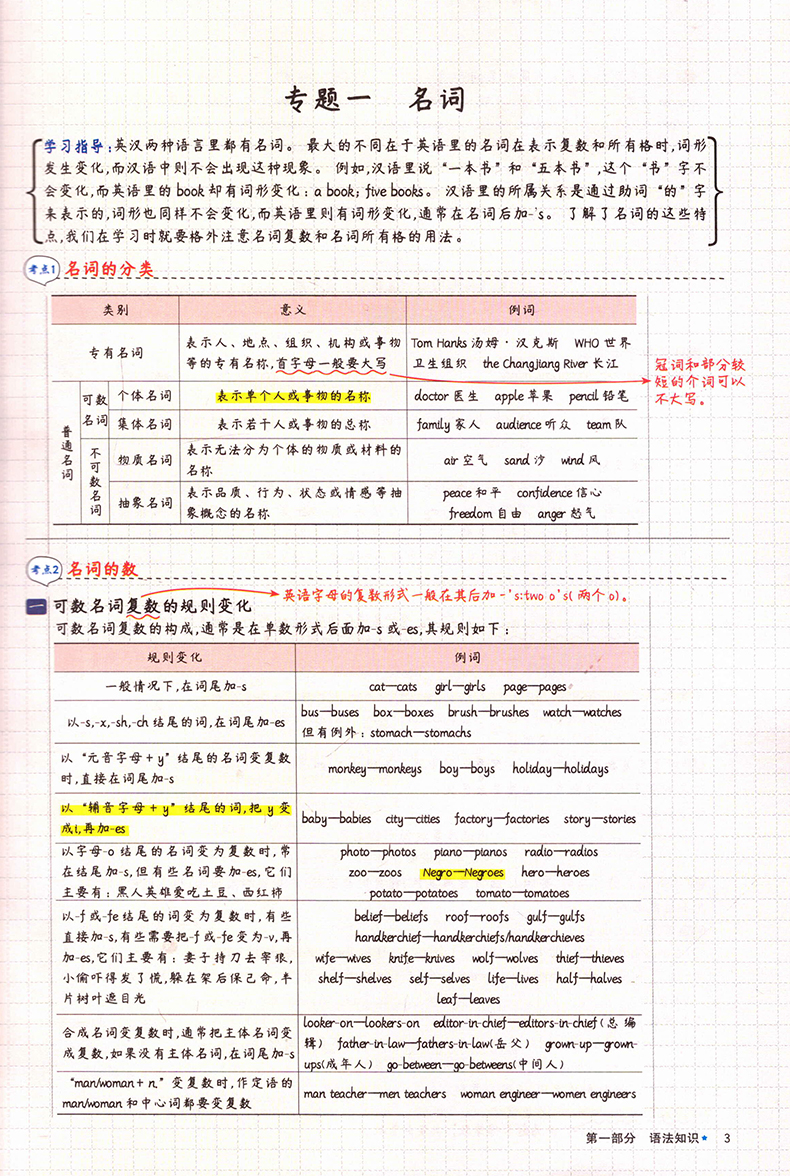 专题一 名词
学习指导:英汉两种语言里都有名词。 最大的不同在于英语里的名词在表示复数和所有格时,词形
发生变化,而汉语中则不会出现这种现象。 例如,汉语里说“一本书”和“五本书”,这个“书”字不
会变化,而英语里的 book 却有词形变化: a book; five books。 汉语里的所属关系是通过助词“的”字
来表示的,词形也同样不会变化,而英语里则有词形变化,通常在名词后加-'s。 了解了名词的这些特
点,我们在学习时就要格外注意名词复数和名词所有格的用法。
考点1 名词的分类
类别 意义 例词
专有名词
表示人、地点、组织、机构或事物
等的专有名称,首字母一般要大写
Tom Hanks 汤姆·汉克斯 WHO 世界
卫生组织 the Changjiang River 长江
冠词和部分较
短的介词可以
不大写。
普通名词
可数名词
个体名词 表示单个人或事物的名称 doctor 医生 apple 苹果 pencil 铅笔
集体名词 表示若干人或事物的总称 family 家人 audience 听众 team 队
不可数名词
物质名词
表示无法分为个体的物质或材料的
名称
air 空气 sand 沙 wind 风
抽象名词
表示品质、行为、状态或情感等抽
象概念的名称
peace 和平 confidence 信心
freedom 自由 anger 怒气
考点2 名词的数
英语字母的复数形式一般在其后加-'s:two o's(两个o)。
一 可数名词复数的规则变化
可数名词复数的构成,通常是在单数形式后面加-s 或-es,其规则如下:
规则变化 例词
一般情况下,在词尾加-s cat—cats girl—girls page—pages
以-s,-x,-sh,-ch 结尾的词,在词尾加-es
bus—buses box—boxes brush—brushes watch—watches
但有例外: stomach—stomachs
以“元音字母+y”结尾的名词变复数
时,直接在词尾加-s
monkey—monkeys boy—boys holiday—holidays
以“辅音字母+y”结尾的词,把 y 变
成i,再加-es
baby—babies city—cities factory—factories story—stories
以字母-o 结尾的名词变为复数时,常
在结尾加-s,但有些名词要加-es,它们
主要有:黑人英雄爱吃土豆、西红柿
photo—photos piano—pianos radio—radios
zoo—zoos Negro—Negroes hero—heroes
potato—potatoes tomato—tomatoes
以-f 或-fe 结尾的词变为复数时,有些
直接加-s,有些需要把-f 或-fe变为-v,再
加-es,它们主要有:妻子持刀去宰狼,
小偷吓得发了慌,躲在架后保己命,半
片树叶遮目光
belief—beliefs roof—roofs gulf—gulfs
handkerchief—handkerchiefs/handkerchieves
wife—wives knife—knives wolf—wolves thief—thieves
shelf—shelves self—selves life—lives half—halves
leaf—leaves
合成名词变复数时,通常把主体名词变
成复数,如果没有主体名词,在词尾加-s
looker-on—lookers-on editor-in-chief—editors-in-chief(总编
辑) father-in-law—fathers-in-law(岳父) grown-up—grown-
ups(成年人) go-between—go-betweens(中间人)
“man/woman+n.”变复数时,作定语的
man/woman 和中心词都要变复数
man teacher—men teachers woman engineer—women engineers
第一部分 语法知识★ 3